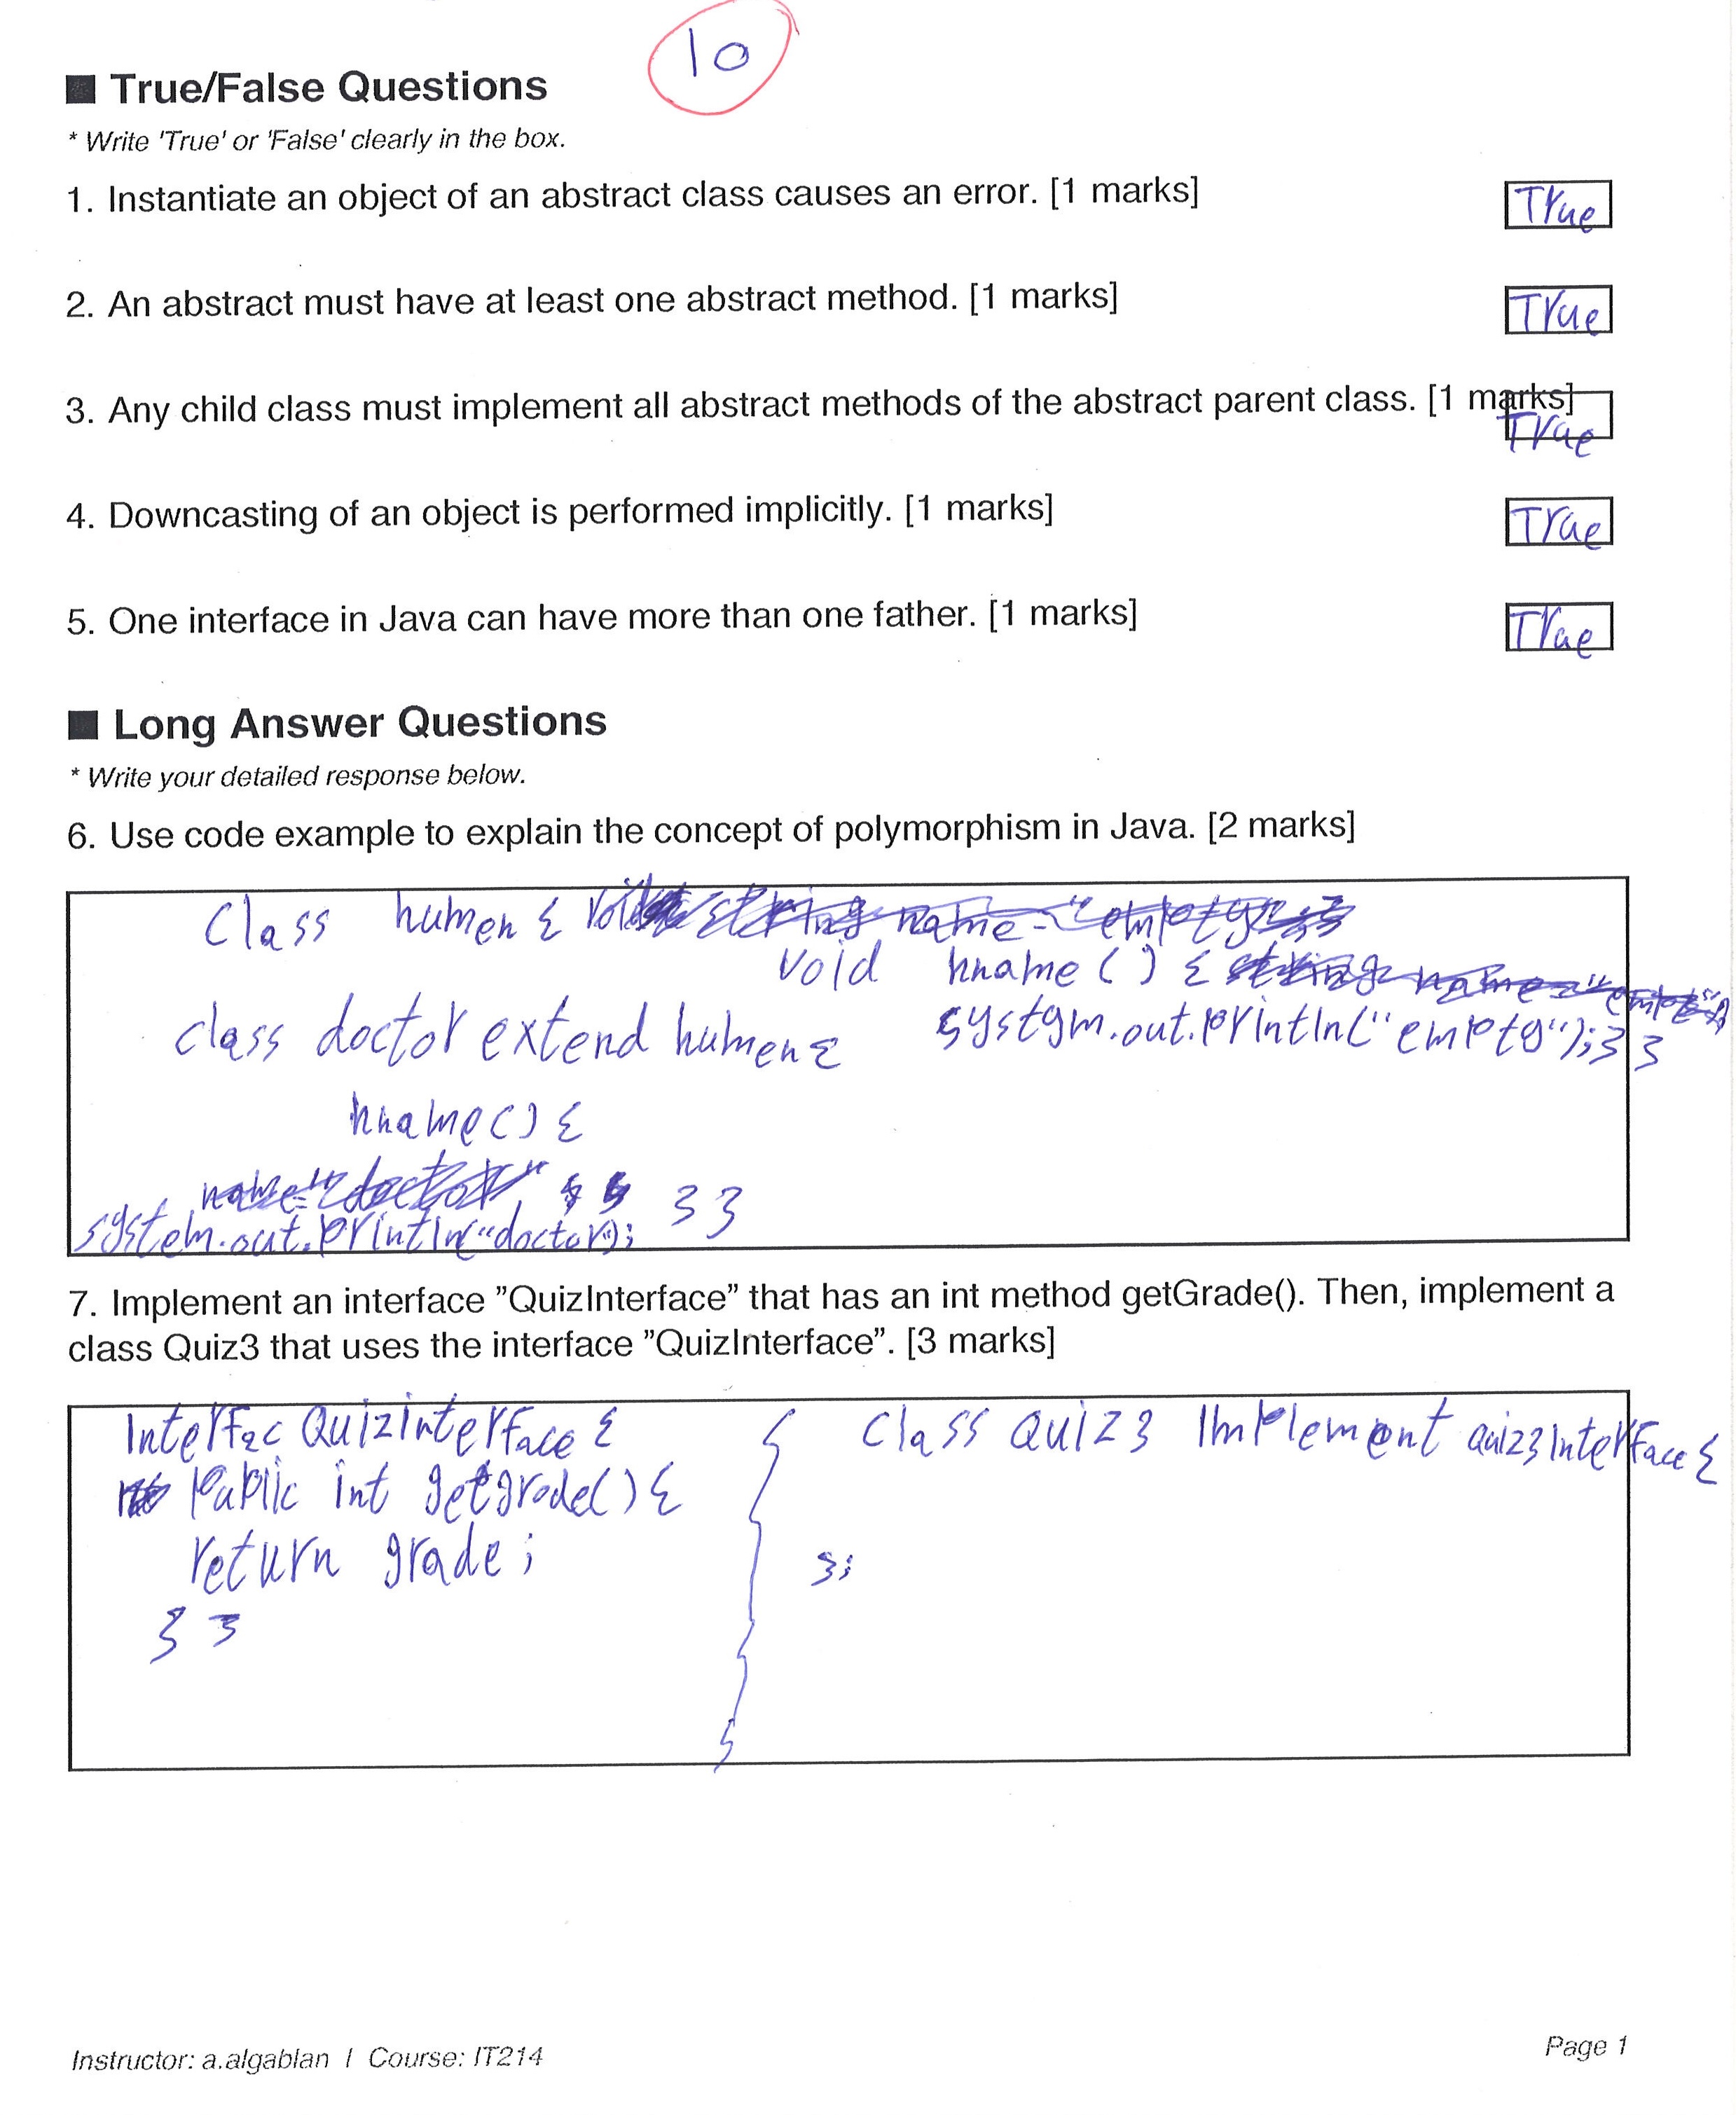 10
■ True/False Questions
* Write 'True' or 'False' clearly in the box.
1. Instantiate an object of an abstract class causes an error. [1 marks]
True
2. An abstract must have at least one abstract method. [1 marks]
True
3. Any child class must implement all abstract methods of the abstract parent class. [1 marks]
True
4. Downcasting of an object is performed implicitly. [1 marks]
True
5. One interface in Java can have more than one father. [1 marks]
True
■ Long Answer Questions
* Write your detailed response below.
6. Use code example to explain the concept of polymorphism in Java. [2 marks]
Class humen { void string name = "empty"; }
void hname ( ) { string name = "empty"
class doctor extend humen {
system.out.println("empty"); } }
hname() {
name="doctor"
system.out.println("doctor); } }
7. Implement an interface ”QuizInterface” that has an int method getGrade(). Then, implement a
class Quiz3 that uses the interface ”QuizInterface”. [3 marks]
Interfac Quizinterface {
Public int getgrade() {
return grade ;
} }
Class Quiz3 Implement quiz3Interface {
};
Instructor: a.algablan / Course: IT214
Page 1